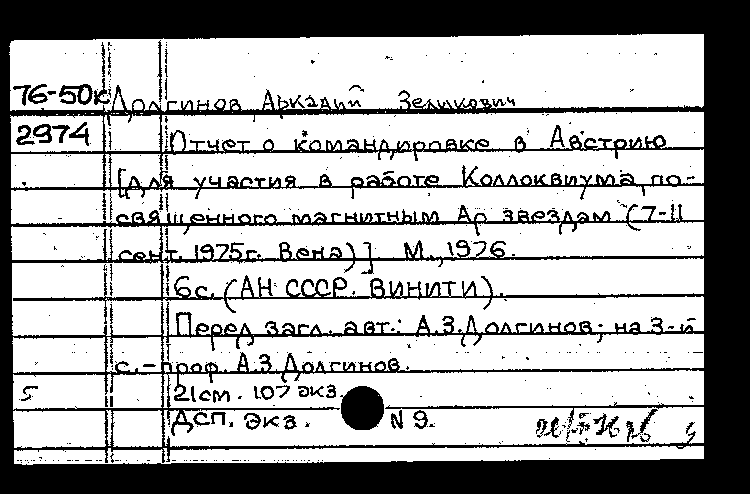 76-50к Долгинов Аркадий Зеликович
2974 Отчет о командировке в Австрию
[для участия в работе Коллоквиума, по-
священного магнитным Ар звездам (7-11
сент. 1975г. Вена)] М., 1976.
6с. (АН СССР. ВИНИТИ).
Перед загл. авт.: А.З.Долгинов; на 3-й
с. - проф. А.З.Долгинов.
5 21см. 107 экз.
ДСП. Экз. N 9.